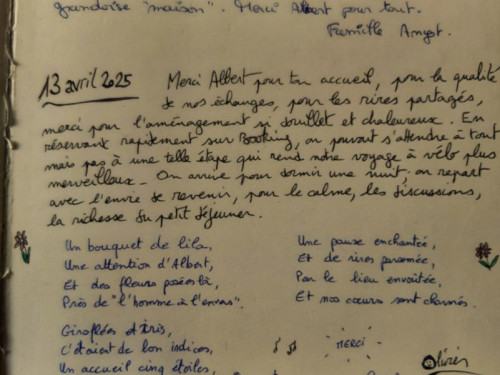 grandoise "maison". Merci Albert pour tout.
Famille Amyot.
13 avril 2025
Merci Albert pour ton accueil, pour la qualité
de nos échanges, pour les rires partagés,
merci pour l'aménagement si douillet et chaleureux. En
réservant rapidement sur Booking, on pouvait s'attendre à tout
mais pas à une telle étape qui rend notre voyage à vélo plus
merveilleux. On arrive pour dormir une nuit, on repart
avec l'envie de revenir, pour le calme, les discussions,
la richesse du petit déjeuner.
Un bouquet de lilas,
Une attention d'Albert,
Et des fleurs posées là,
Près de "l'homme à l'envers".
Giroflées et Iris,
C'étaient de bon indices,
Un accueil cinq étoiles,
Une pause enchantée,
Et de rires parsemée,
Par le lieu envoûtée,
Et nos cœurs sont charmés.
MERCI